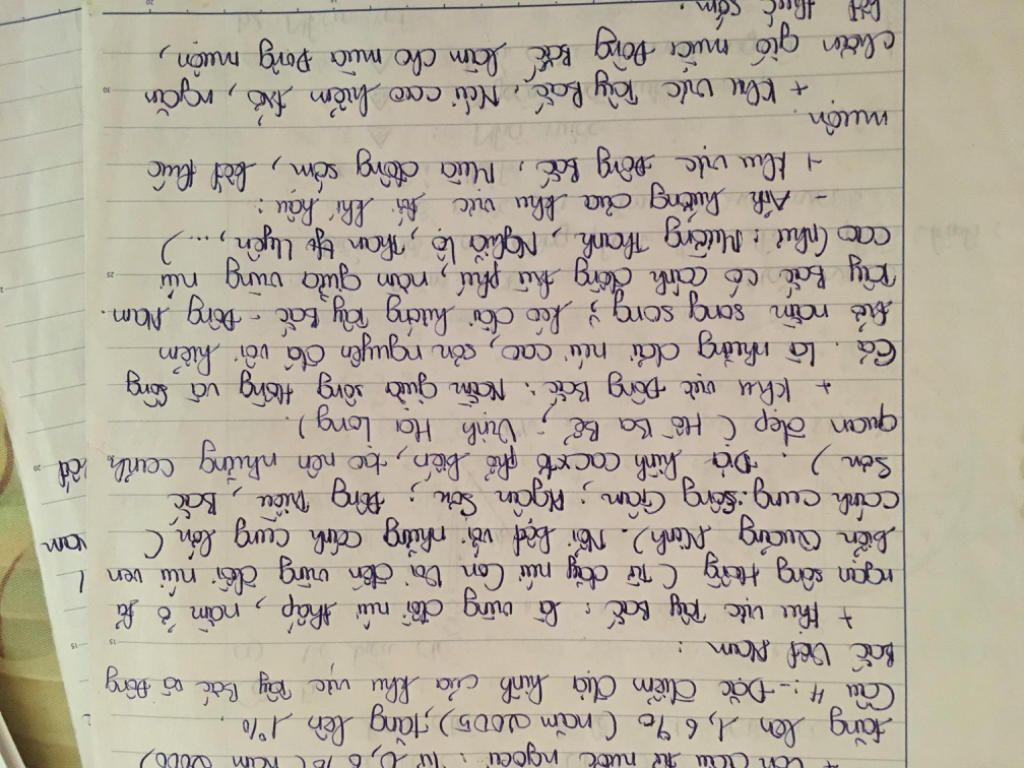 + Vốn đầu tư nước ngoài : Từ 0,6 % (năm 2000)
tăng lên 1,6 % (năm 2005), tăng lên 1%.
Câu 4 : - Đặc điểm địa hình của khu vực Tây Bắc và Đông
Bắc Việt Nam :
+ Khu vực Tây Bắc : là vùng đồi núi thấp, nằm ở tả
ngạn sông Hồng (Từ dãy núi Con Voi đến vùng đồi núi ven
biển Quảng Ninh). Nổi bật với những cánh cung lớn (
cánh cung: Sông Gâm ; Ngân Sơn ; Đông Triều, Bắc
Sơn ) . Địa hình cacxtơ phổ biến, tạo nên những cảnh
quan đẹp ( Hồ Ba Bể ; Vịnh Hạ Long ).
+ Khu vực Đông Bắc : Nằm giữa sông Hồng và sông
Cả. Là những dải núi cao, sơn nguyên đá vôi hiểm
trở nằm song song ; kéo dài hướng Tây Bắc - Đông Nam.
Tây Bắc có cánh đồng trù phú, nằm giữa vùng núi
cao (như : Mường Thanh, Nghĩa Lộ, Than Uyên, ...)
- Ảnh hưởng của khu vực tới khí hậu :
+ Khu vực Đông Bắc, Mùa đông sớm, kết thúc
muộn.
+ Khu vực Tây Bắc, Núi cao hiểm trở, ngăn
chặn gió mùa Đông Bắc làm cho mùa Đông muộn,
kết thúc sớm.